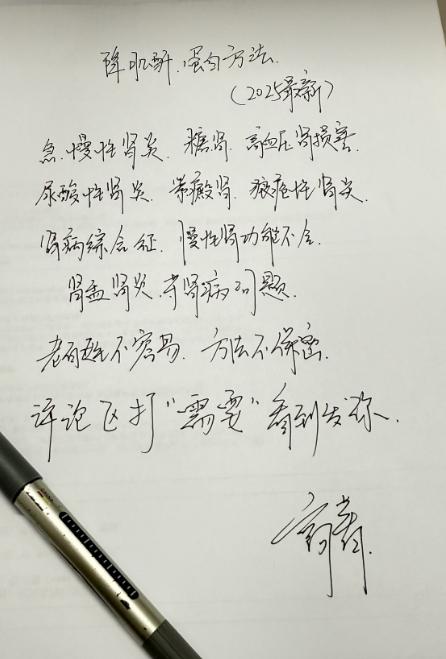 降肌酐.蛋白方法.
(2025最新)
急.慢性肾炎.糖肾.高血压肾损害.
尿酸性肾炎.紫癜肾.狼疮性肾炎.
肾病综合征.慢性肾功能不全.
肾盂肾炎.等肾病问题.
老百姓不容易.方法不保密.
评论区打"需要"看到发你.